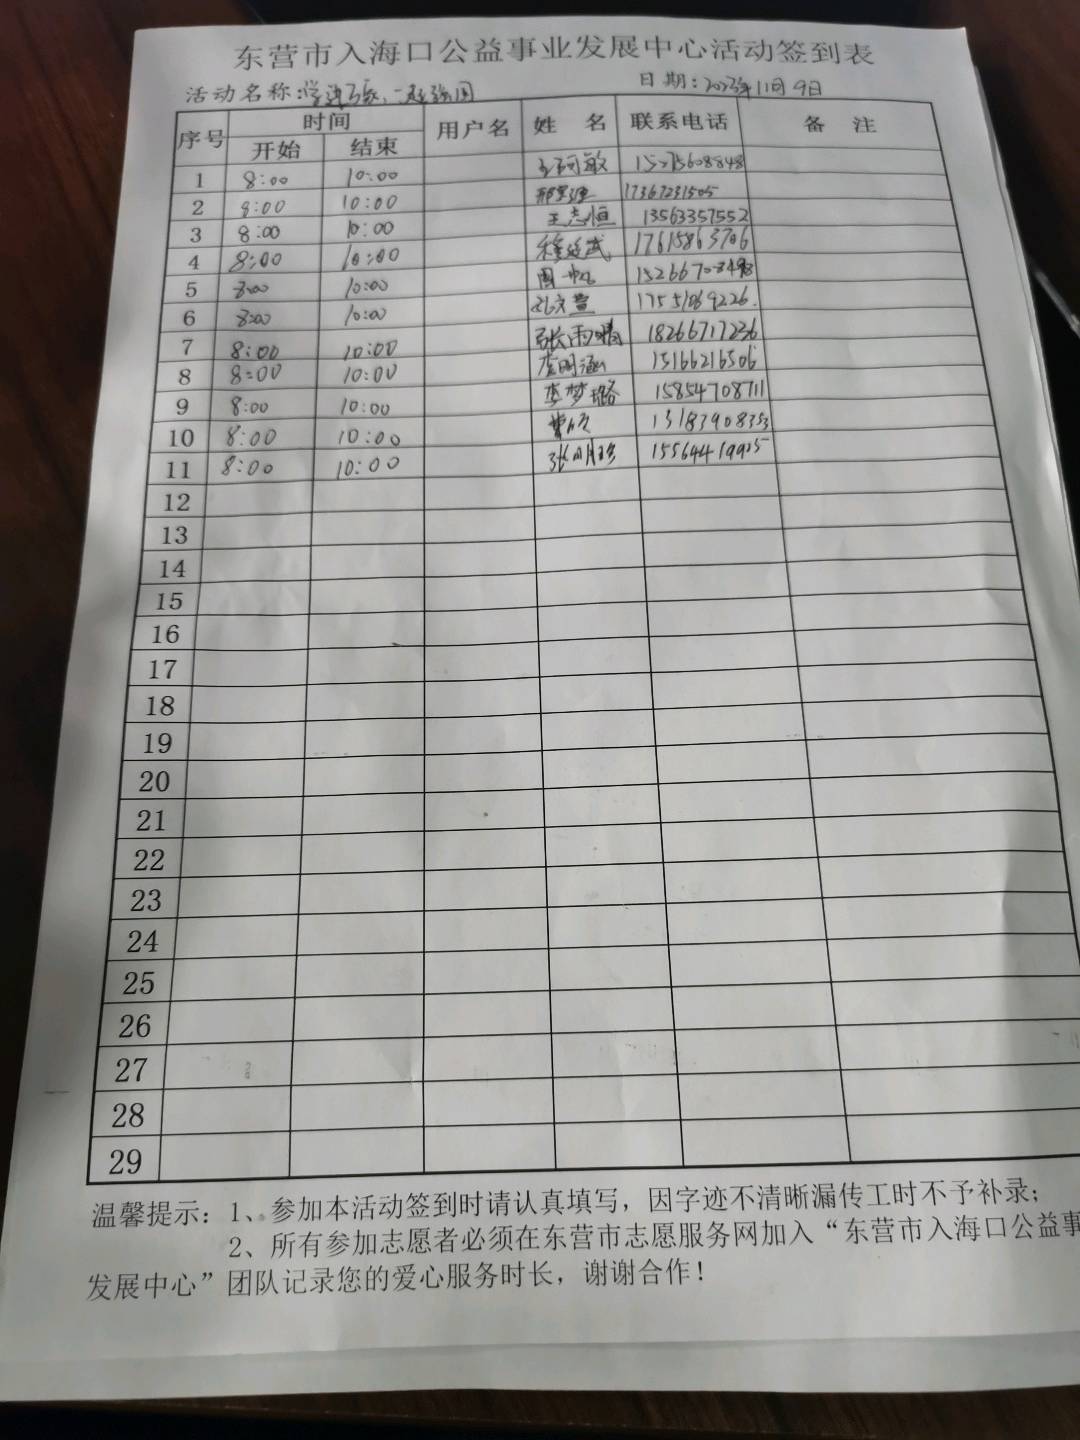 东营市入海口公益事业发展中心活动签到表
活动名称: 日期: 2023年11月9日
序号 时间 用户名 姓 名 联系电话 备 注
开始 结束
1 8:00 10:00
2 8:00 10:00 17367231505
3 8:00 10:00 王志恒 13563357552
4 8:00 10:00 17615863706
5 8:00 10:00
6 8:00 10:00
7 8:00 10:00 张雨晴 18266717236
8 8:00 10:00 15166216506
9 8:00 10:00 李梦璐 15854708711
10 8:00 10:00 13183908353
11 8:00 10:00
12
13
14
15
16
17
18
19
20
21
22
23
24
25
26
27
28
29
温馨提示：1、参加本活动签到时请认真填写，因字迹不清晰漏传工时不予补录；
2、所有参加志愿者必须在东营市志愿服务网加入“东营市入海口公益事
发展中心”团队记录您的爱心服务时长，谢谢合作！